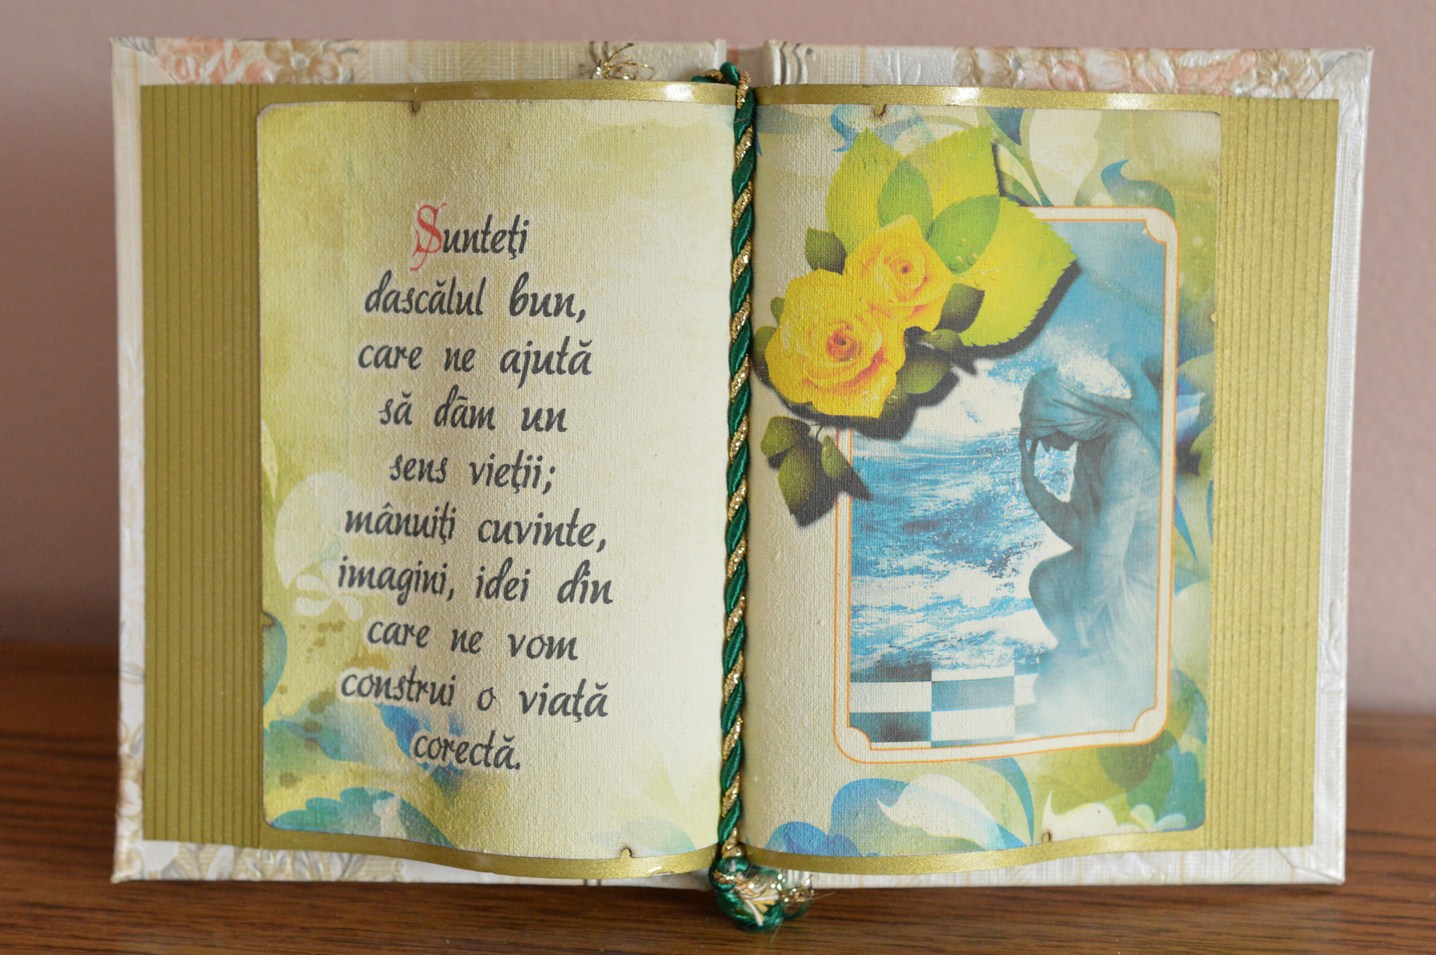 Sunteţi
dascălul bun,
care ne ajută
să dăm un
sens vieţii;
mânuiţi cuvinte,
imagini, idei din
care ne vom
construi o viaţă
corectă.